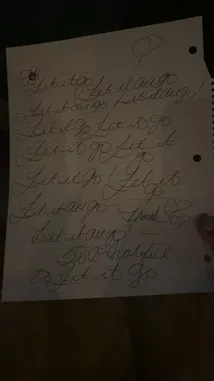 Let it go Let it all go
Let it all go Let it all go!
Let it go Let it go
Let it go Let it go
Let it go! Let it go
Let it all go - Thanks
Let it all go -
So Grateful
Let it go